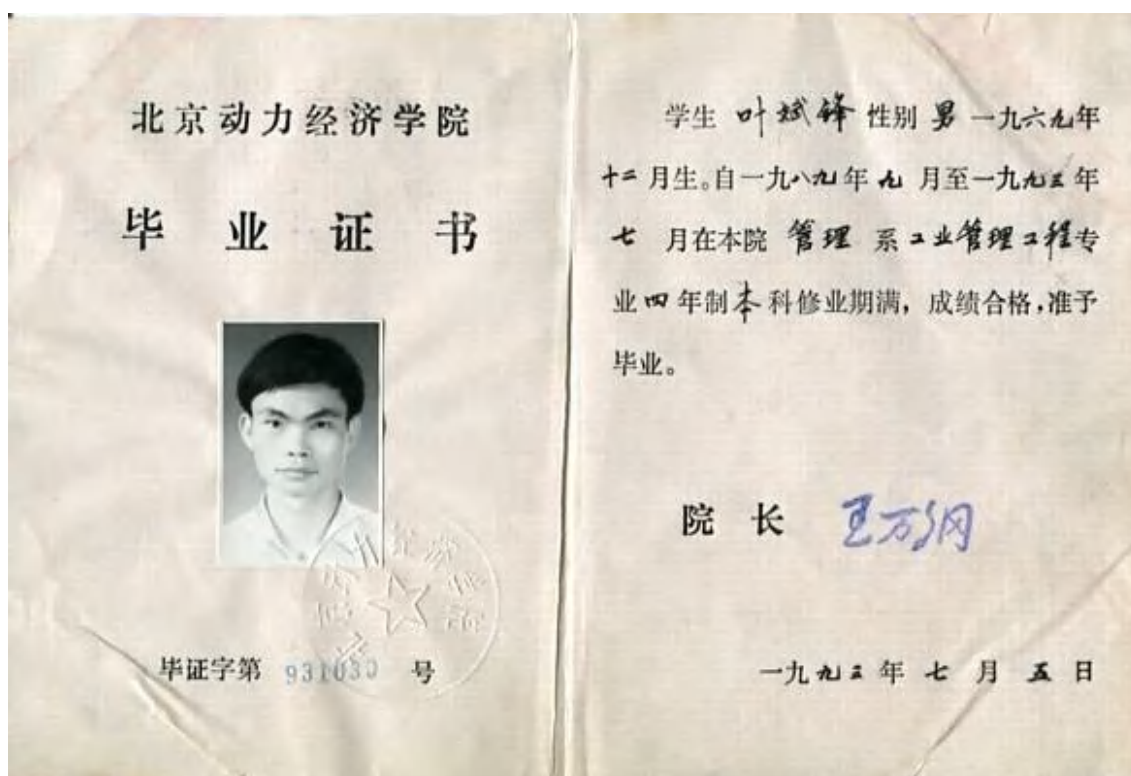 北京动力经济学院
毕业证书
毕证字第 931030 号
学生 叶斌锋 性别 男 一九六九年
十二月生。自一九八九年九月至一九九三年
七月在本院 管理 系工业管理工程专
业四年制本科修业期满，成绩合格，准予
毕业。
院长 王万纲
一九九三年七月五日